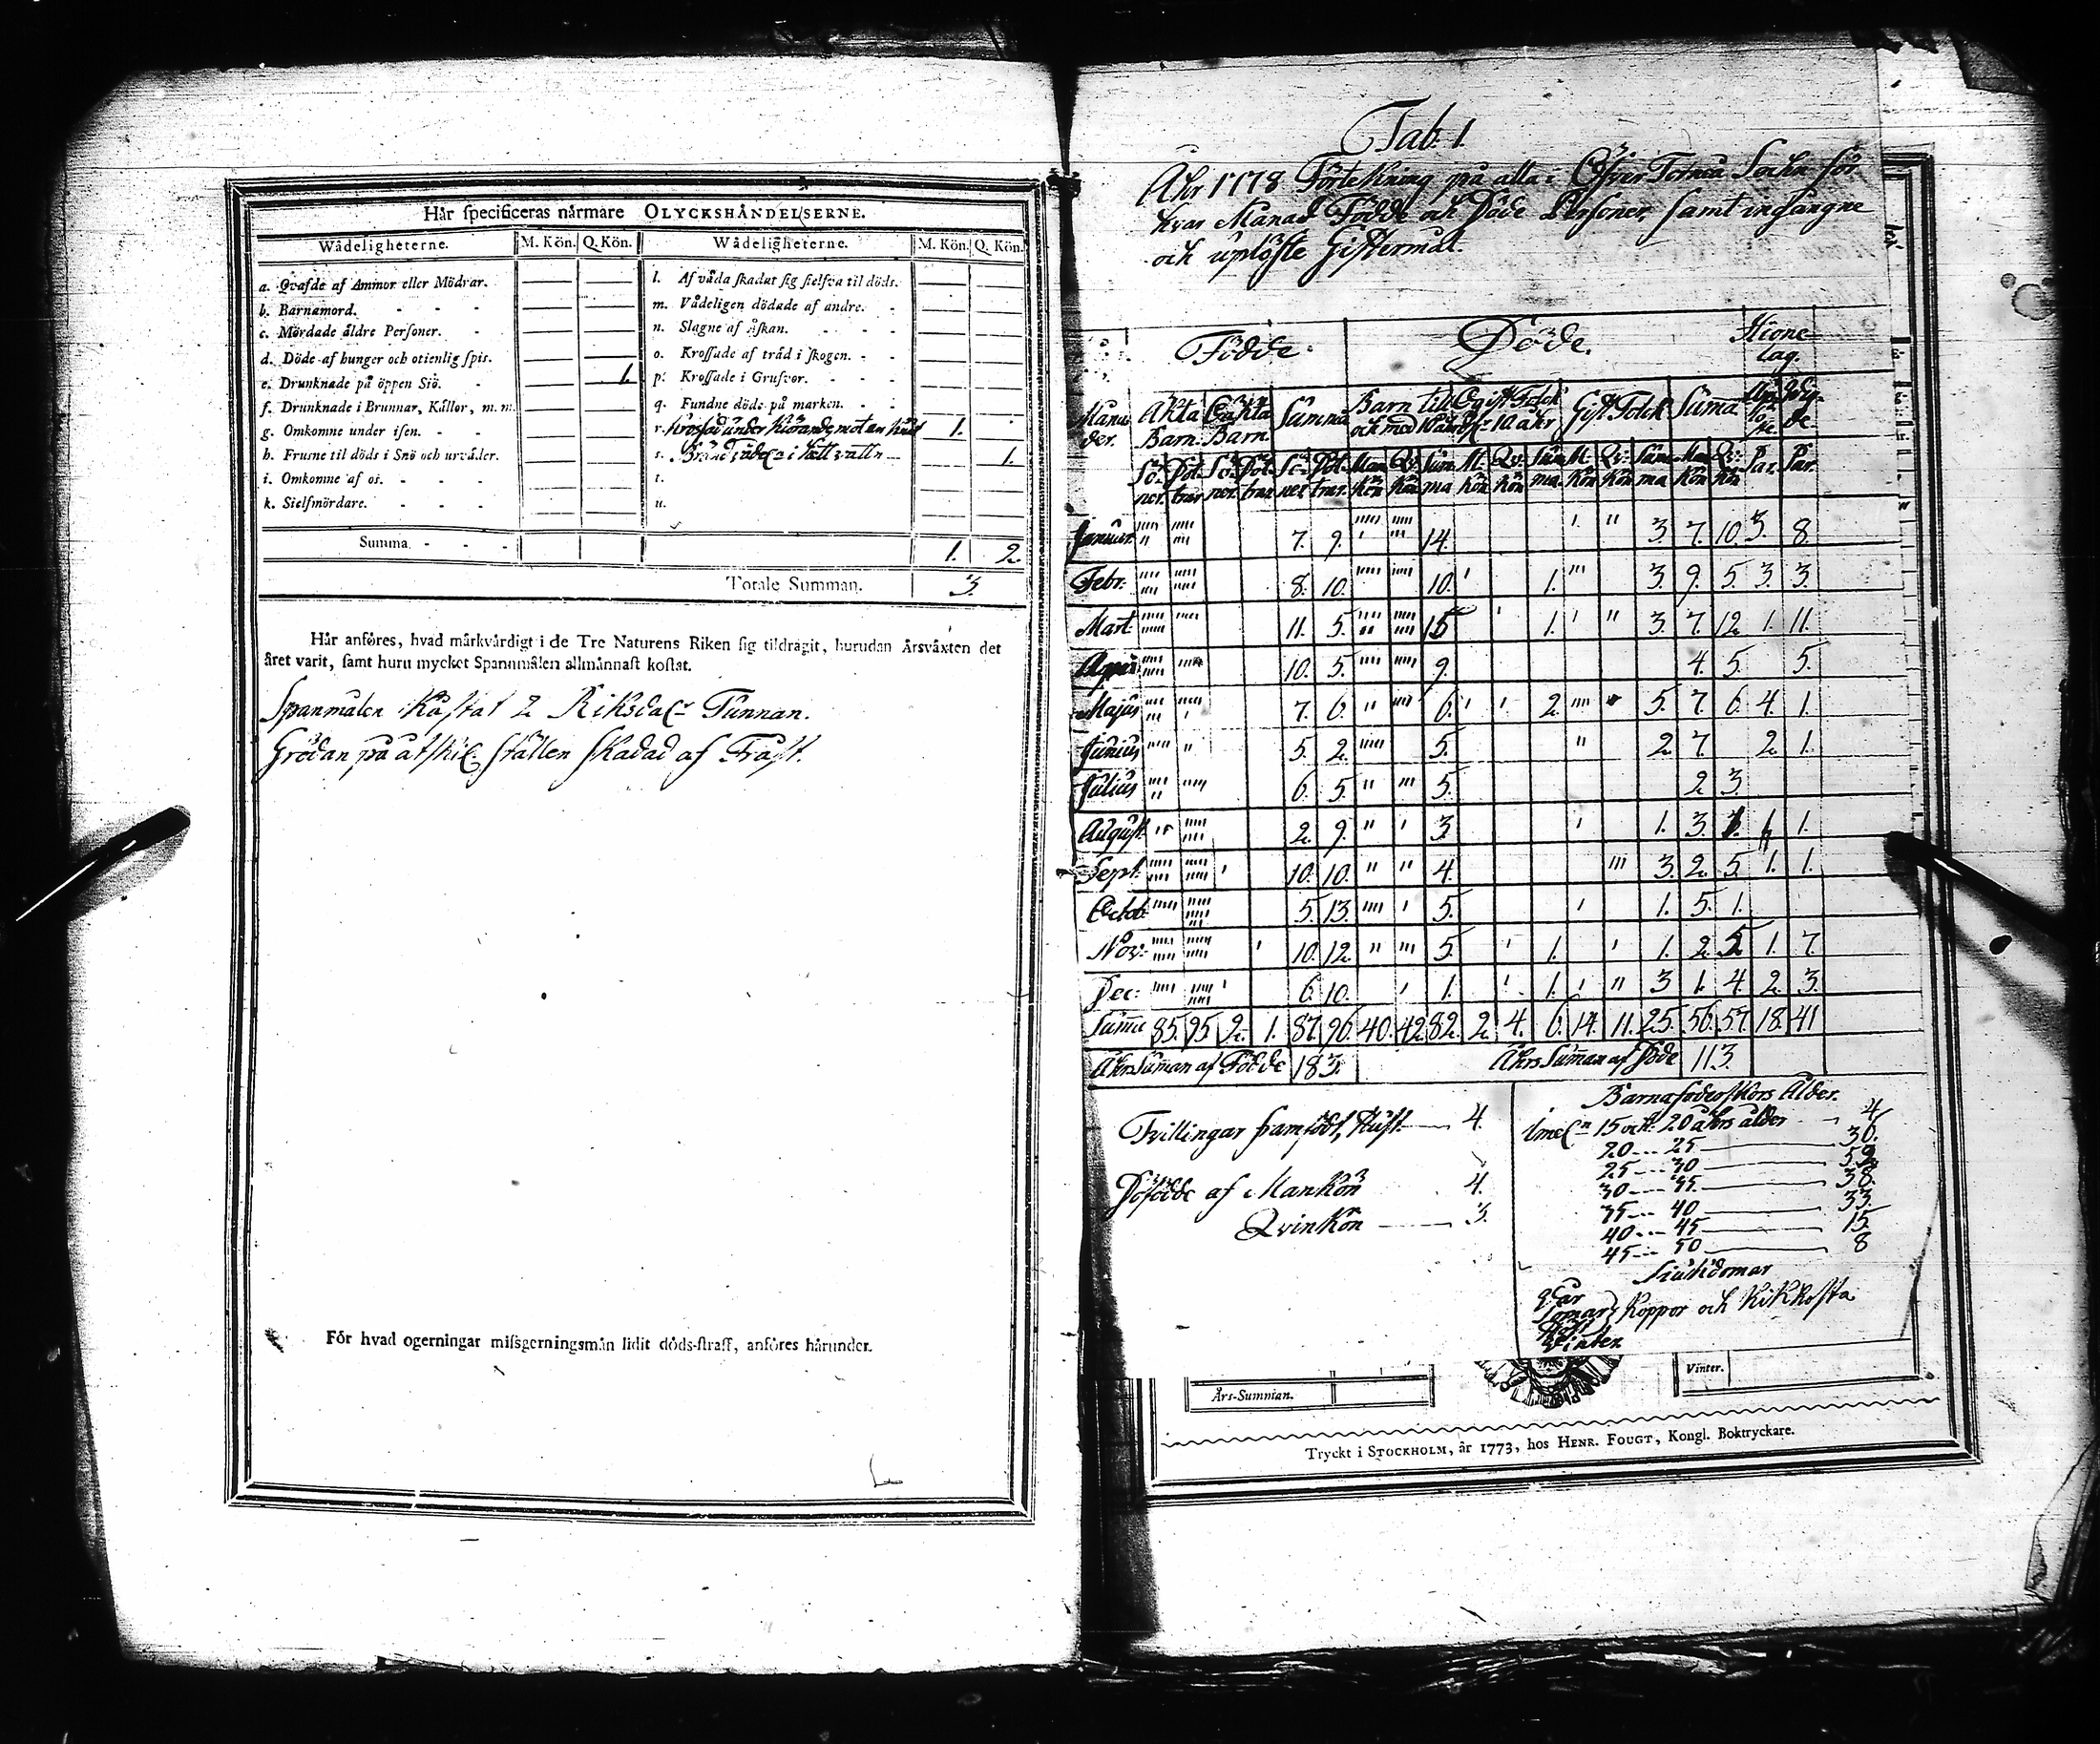 Hår specificeras nårmare OLYCKSHÅNDELSERNE.
Wådeligheterne. M. Kön. Q. Kön. Wådeligheterne. M. Kön. Q. Kön.
a. Qvafde af Ammor eller Mödrar. l. Af våda skadat sig sielfva til döds.
b. Barnamord. m. Vådeligen dödade af andre.
c. Mördade åldre Personer. n. Slagne af Åskan.
d. Döde af hunger och otienlig spis. o. Krossade af tråd i skogen.
e. Drunknade på öppen Siö. 1. p. Krossade i Grufvor.
f. Drunknade i Brunnar, Kållor, m. m. q. Fundne döde på marken.
g. Omkomne under isen. r. Krossad under kiörande mot en 1.
h. Frusne til döds i Snö och urvåder. s. i 1.
i. Omkomne af os. t.
k. Sielfmördare. u.
Summa 1. 2.
Totale Summan. 3.
Hår anföres, hvad mårkvårdigt i de Tre Naturens Riken sig tildragit, hurudan Årsvåxten det
året varit, samt huru mycket Spannmålen allmånnast kostat.
Spanmålen Kåstat 2 Riksdal:r Tunnan.
Grödan på åtskil. stållen skadad af Fråst.
För hvad ogerningar missgerningsmån lidit döds-straff, anföres hårunder.
Tab. 1.
Åhr 1778 Förtekning på alla i Öfver Tornea Sochn för
hvar Månad Födde och Döde Personer, samt ingångne
och uplöste Giftermål.
Födde. Döde. Hione
lag.
Måna
der. Åkta
Barn. Oåkta
Barn. Summa Barn till
och med 10 åhr Ogift Folck
öfr 10 åhr Gift Folck Suma
Januar. 7. 9. 14. 3 7. 10. 3. 8.
Febr: 8. 10. 10. 1. 3. 9. 5. 3. 3.
Mart. 11. 5. 15 1. 3. 7. 12. 1. 11.
April 10. 5. 9. 4. 5. 5.
Majus 7. 6. 6. 2. 5. 7 6. 4. 1.
Junius 5. 2. 5. 2. 7. 2. 1.
Julius 6. 5. 5. 2 3.
August. 2. 9. 3. 1. 3. 1.
Sept. 10. 10. 4. 3. 2. 5. 1. 1.
Octob. 5. 13. 5. 1. 5. 1.
Nov: 10. 12. 5. 1. 1. 2. 5 1. 7.
Dec: 6. 10. 1. 1. 3 1. 4. 2. 3.
Suma 85. 95 2. 1. 87. 96. 40. 42. 82. 2. 4. 6. 14. 11. 25. 56. 57. 18. 41
Åhrs Suman af Födde 183. Åhrs Suman af Döde 113.
Tvillingar framfödt, Hust. 4.
Döfödde af Mankön 4.
Qvinkön 3.
Barnaföderskors Ålder.
15 och 20 åhrs ålder 4
20 --- 25 30.
25 --- 30 59
30 --- 35. 38.
35 --- 40 33.
40 --- 45 15.
45 --- 50 8
Siukdomar
Vår
Somar Koppor och Kikhosta
Höst
Vinter
Års-Summan. Vinter.
Tryckt i STOCKHOLM, år 1773, hos HENR. FOUGT, Kongl. Boktryckare.